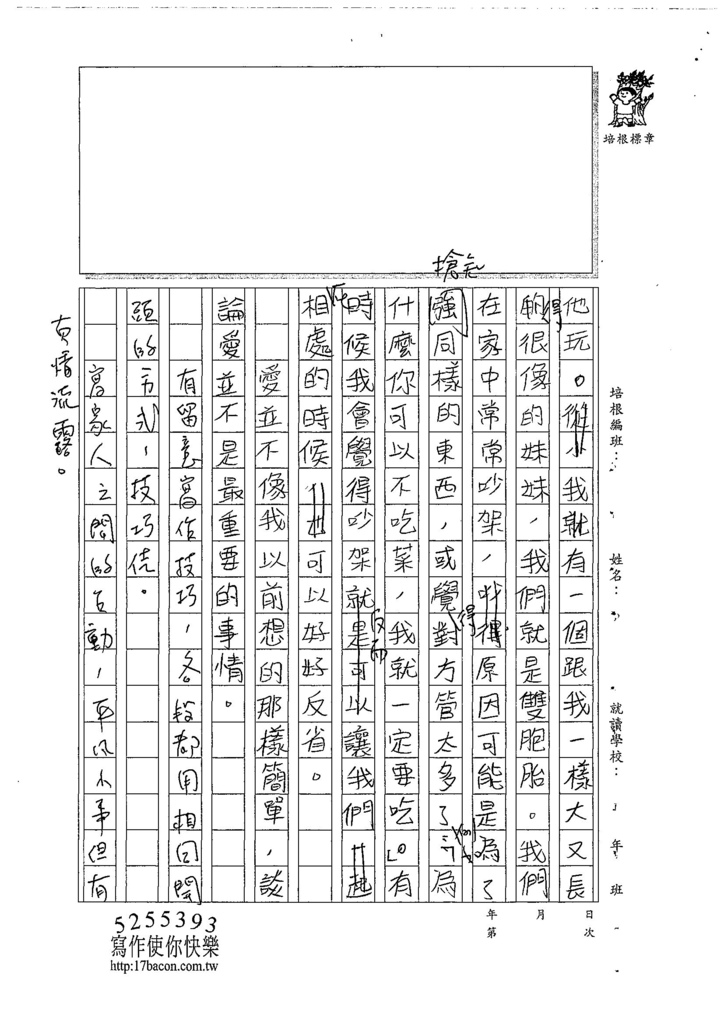 培根標章
培根編班：
姓名：
就讀學校：
年 班
年 月 日
第 次
他玩。從小我就有一個跟我一樣大又長
得很像的妹妹，我們就是雙胞胎。我們
在家中常常吵架，吵得原因可能是為了
強同樣的東西，或覺對方管太多了「為
搶
得
什麼你可以不吃菜，我就一定要吃」。有
時候我會覺得吵架就是可以讓我們一起
反而
相處的時候，也可以好好反省。
愛並不像我以前想的那樣簡單，談
論愛並不是最重要的事情。
有留意寫作技巧，各段都用相同開
頭的方式，技巧佳。
寫家人之間的互動，平凡小事但有
真情流露。
5255393
寫作使你快樂
http:17bacon.com.tw